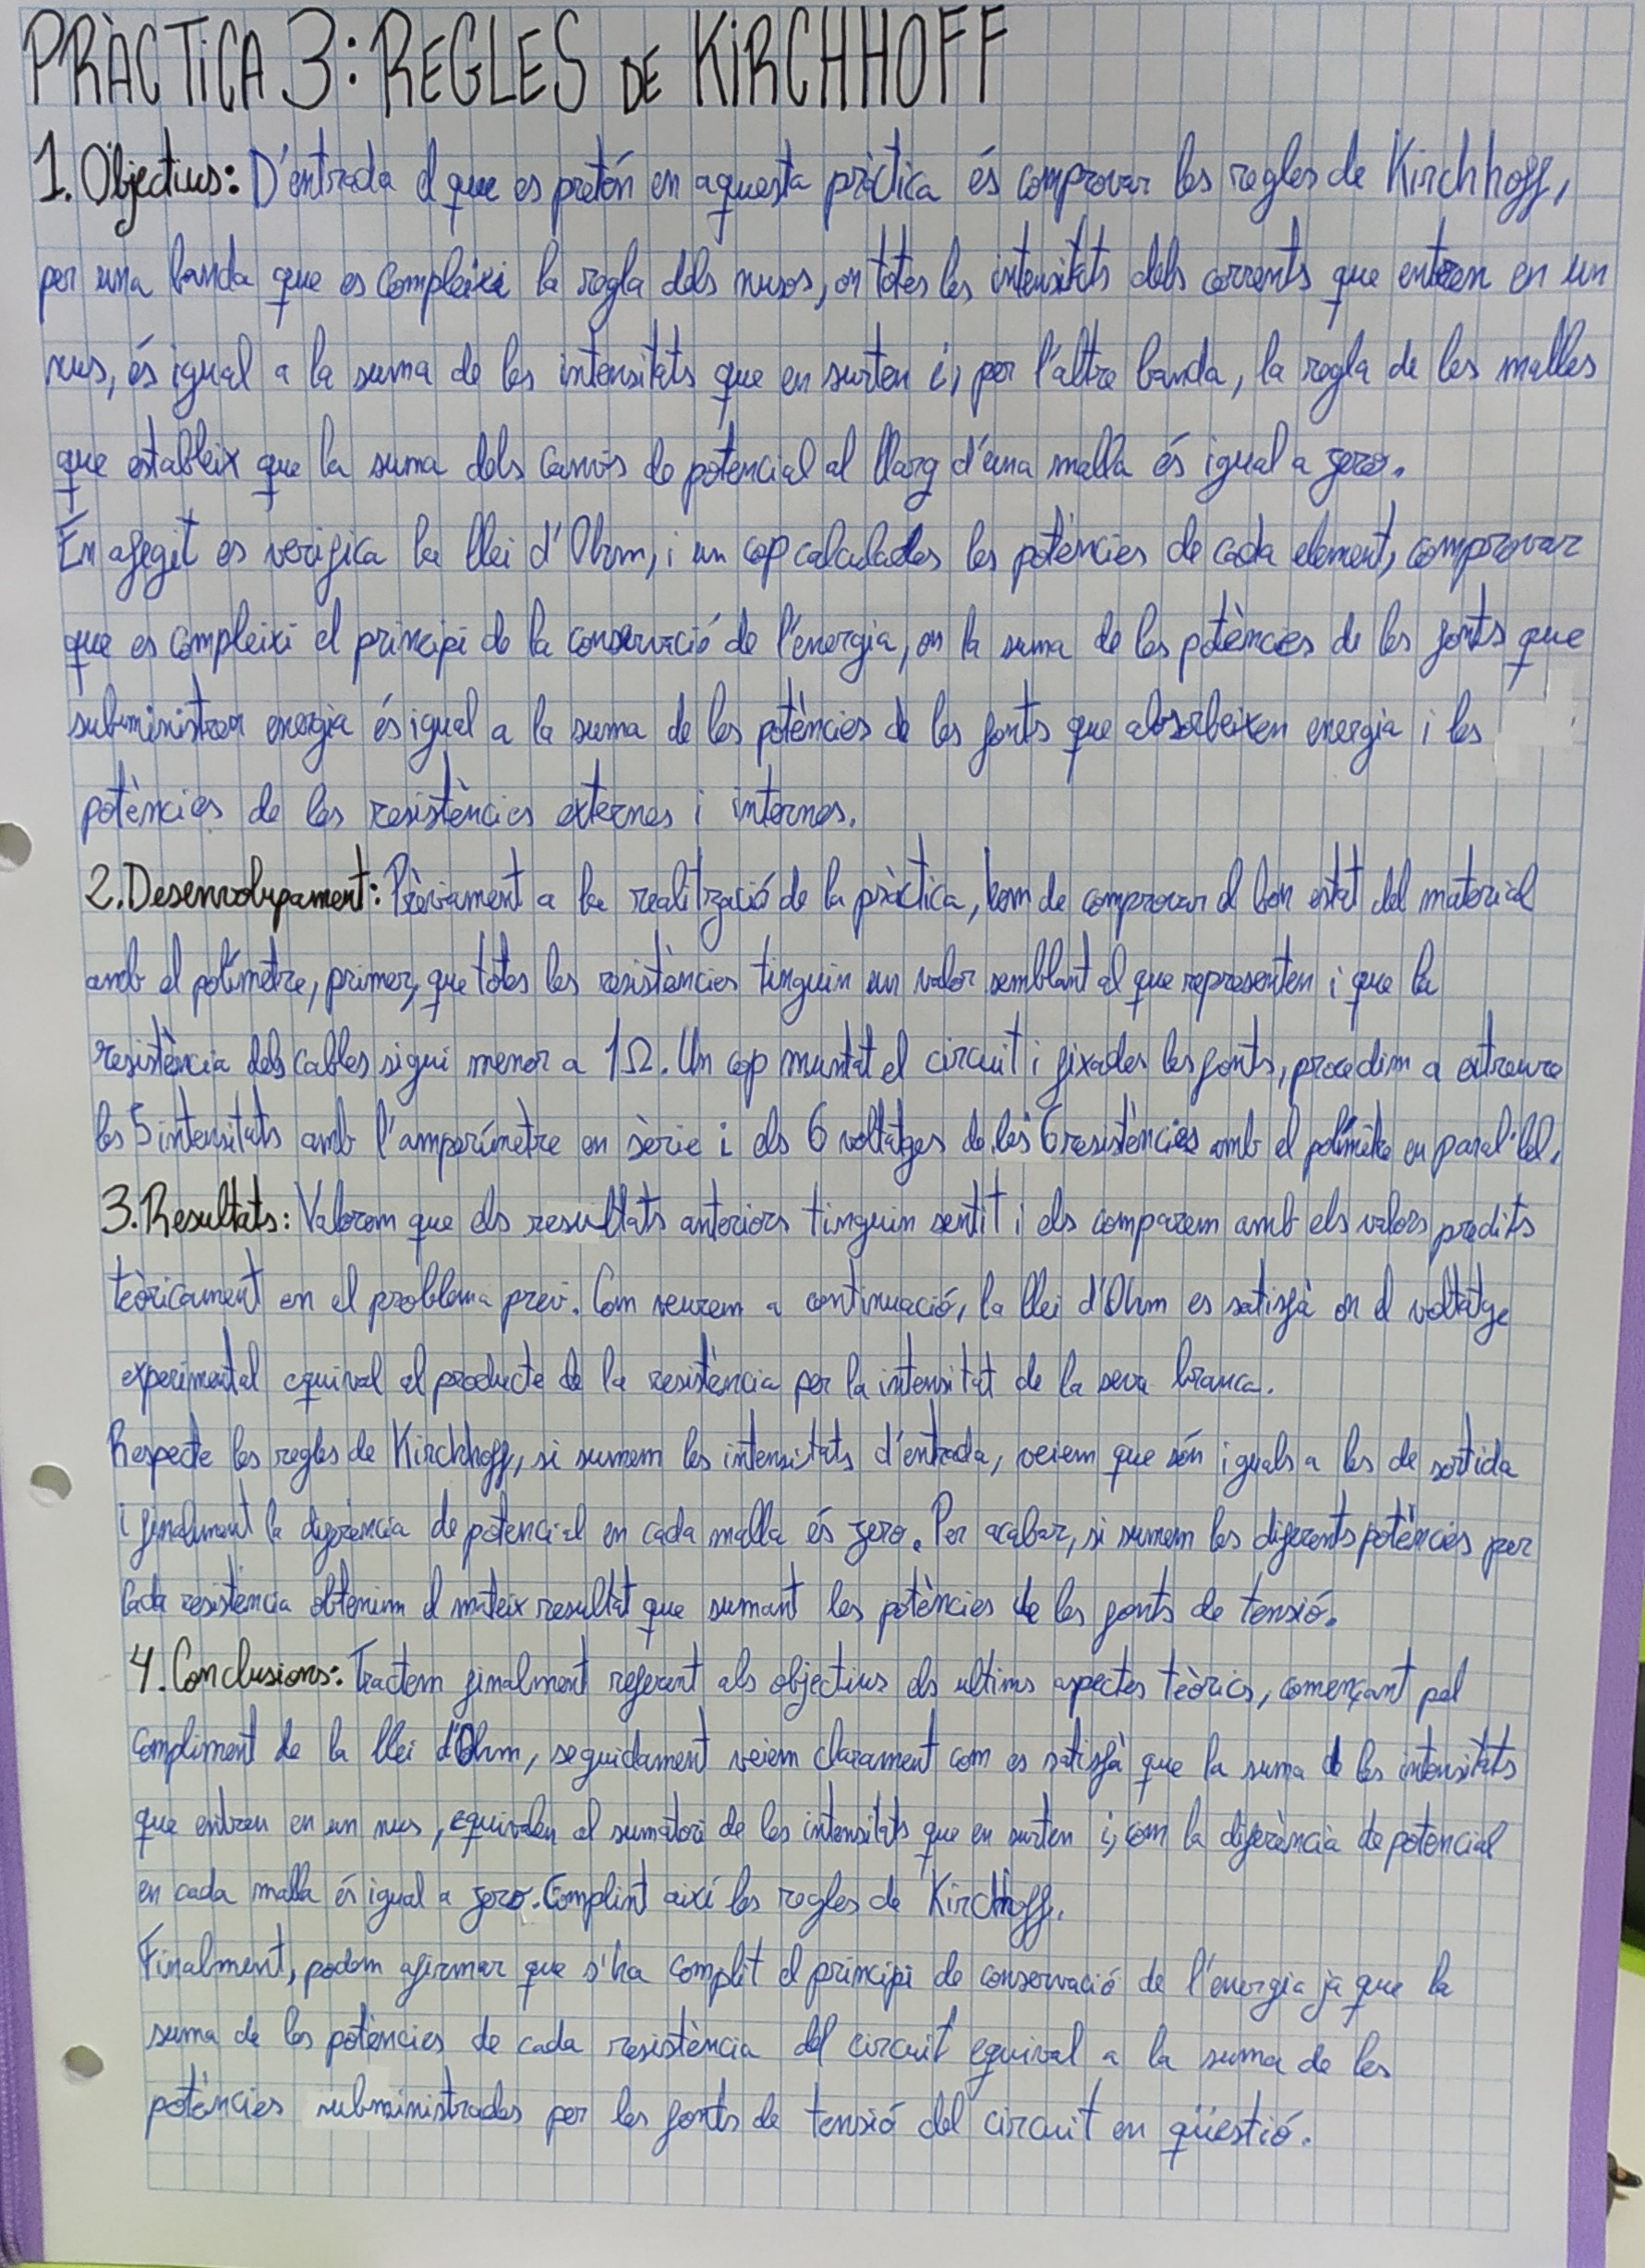 PRÀCTICA 3: REGLES DE KIRCHHOFF
1. Objectius: D'entrada el que es pretén en aquesta pràctica és comprovar les regles de Kirchhoff,
per una banda que es compleixi la regla dels nusos, on totes les intensitats dels corrents que entren en un
nus, és igual a la suma de les intensitats que en surten i, per l'altre banda, la regla de les malles
que estableix que la suma dels canvis de potencial al llarg d'una malla és igual a zero.
En afegit es verifica la llei d'Ohm, i un cop calculades les potències de cada element, comprovar
que es compleixi el principi de la conservació de l'energia, on la suma de les potències de les fonts que
subministren energia és igual a la suma de les potències de les fonts que absorbeixen energia i les
potències de les resistències externes i internes.
2. Desenvolupament: Prèviament a la realització de la pràctica, hem de comprovar el bon estat del material
amb el polímetre, primer, que totes les resistències tinguin un valor semblant al que representen i que la
resistència dels cables sigui menor a 1Ω. Un cop muntat el circuit i fixades les fonts, procedim a extreure
les 5 intensitats amb l'amperímetre en sèrie i els 6 voltatges de les 6 resistències amb el polímetre en paral·lel.
3. Resultats: Valorem que els resultats anteriors tinguin sentit i els comparem amb els valors predits
teòricament en el problema previ. Com veurem a continuació, la llei d'Ohm es satisfà on el voltatge
experimental equival al producte de la resistència per la intensitat de la seva branca.
Respecte les regles de Kirchhoff, si sumem les intensitats d'entrada, veiem que són iguals a les de sortida
i finalment la diferència de potencial en cada malla és zero. Per acabar, si sumem les diferents potències per
cada resistència obtenim el mateix resultat que sumant les potències de les fonts de tensió.
4. Conclusions: Tractem finalment referent als objectius els ultims aspectes teòrics, començant pel
compliment de la llei d'Ohm, seguidament veiem clarament com es satisfà que la suma de les intensitats
que entren en un nus, equivalen al sumatori de les intensitats que en surten i, com la diferència de potencial
en cada malla és igual a zero. Complint així les regles de Kirchhoff.
Finalment, podem afirmar que s'ha complit el principi de conservació de l'energia ja que la
suma de les potències de cada resistència del circuit equival a la suma de les
potències subministrades per les fonts de tensió del circuit en qüestió.